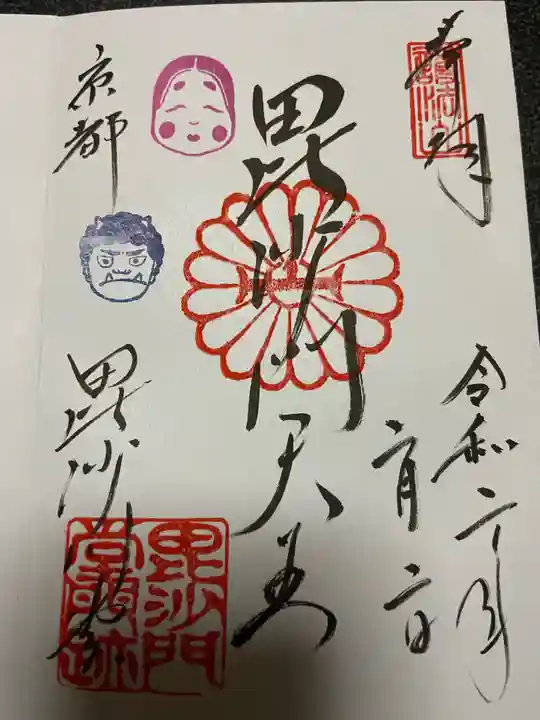 奉拝
令和二年
二月二日
毘沙門天王
京都
毘沙門堂
毘沙門
堂門跡